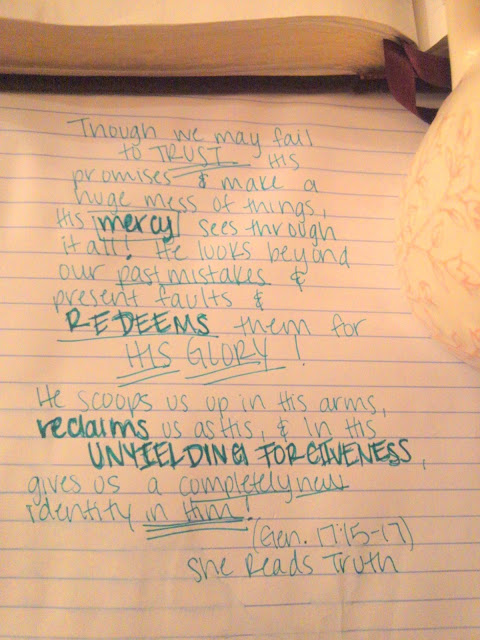 Though we may fail
to TRUST His
promises & make a
huge mess of things,
His mercy sees through
it all! He looks beyond
our past mistakes &
present faults &
REDEEMS them for
HIS GLORY!
He scoops us up in His arms,
reclaims us as His, & in His
UNYIELDING FORGIVENESS,
gives us a completely new
identity in Him!
(Gen. 17:15-17)
She Reads Truth